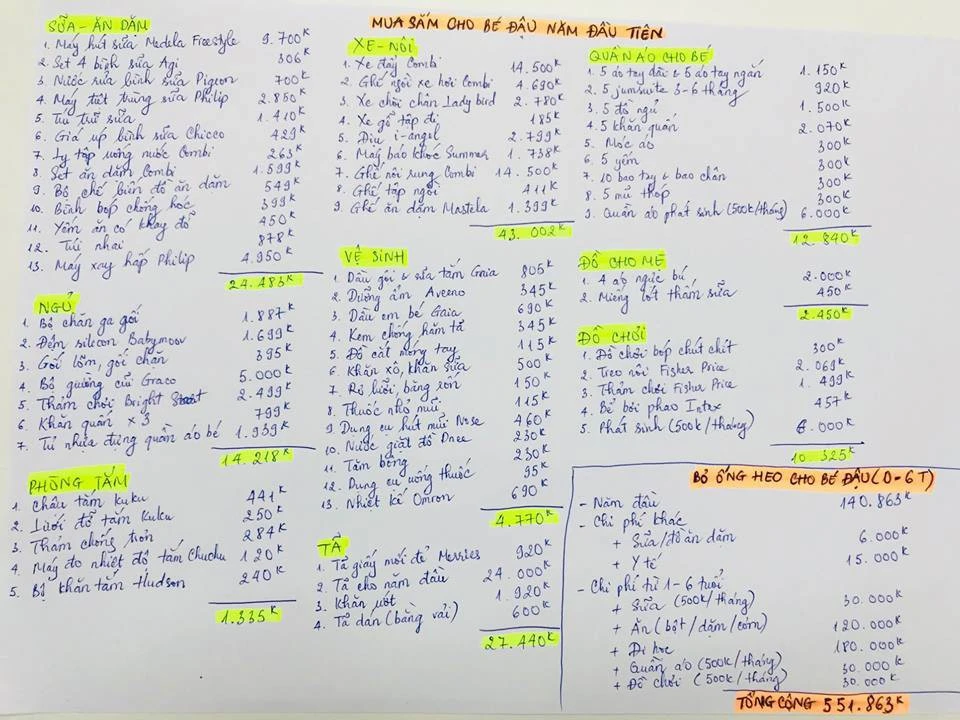 MUA SẮM CHO BÉ ĐẬU NĂM ĐẦU TIÊN
SỮA - ĂN DẶM
1. Máy hút sữa Medela Freestyle 9.700K
2. Set 4 bình sữa Agi 306K
3. Nước rửa bình sữa Pigeon 700K
4. Máy tiệt trùng sữa Philip 2.850K
5. Túi trữ sữa 1.410K
6. Giá úp bình sữa Chicco 429K
7. Ly tập uống nước Combi 263K
8. Set ăn dặm Combi 1.599K
9. Bộ chế biến đồ ăn dặm 549K
10. Bình bóp chống hóc 399K
11. Yếm ăn có khay đổ 450K
12. Túi nhai 878K
13. Máy xay hấp Philip 4.950K
24.483K
NGỦ
1. Bộ chăn ga gối 1.887K
2. Đệm silicon Babymoov 1.699K
3. Gối lõm, gối chăn 395K
4. Bộ giường cũi Graco 5.000K
5. Thảm chơi Bright 2.499K
6. Khăn quấn x 3 799K
7. Tủ nhựa đựng quần áo bé 1.939K
14.218K
PHÒNG TẮM
1. Chậu tắm Kuku 441K
2. Lưới đỡ tắm Kuku 250K
3. Thảm chống trơn 284K
4. Máy đo nhiệt độ tắm Chuchu 120K
5. Bộ khăn tắm Hudson 240K
1.335K
XE - NÔI
1. Xe đẩy Combi 14.500K
2. Ghế ngồi xe hơi Combi 4.690K
3. Xe chòi chân Lady bird 2.780K
4. Xe gỗ tập đi 185K
5. Địu i-angel 2.799K
6. Máy báo khóc Summer 1.738K
7. Ghế nôi rung Combi 14.500K
8. Ghế tập ngồi 411K
9. Ghế ăn dặm Mastela 1.399K
43.002K
VỆ SINH
1. Dầu gội & sữa tắm Gaia 805K
2. Dưỡng ẩm Aveeno 345K
3. Dầu em bé Gaia 690K
4. Kem chống hăm tã 345K
5. Đồ cắt móng tay 115K
6. Khăn xô, khăn sữa 500K
7. Rơ lưỡi, băng rốn 150K
8. Thuốc nhỏ mũi 115K
9. Dụng cụ hút mũi Nose 460K
10. Nước giặt đồ Dnee 230K
11. Tăm bông 230K
12. Dụng cụ uống thuốc 95K
13. Nhiệt kế Omron 690K
4.770K
TÃ
1. Tã giấy mới đẻ Merries 920K
2. Tã cho năm đầu 24.000K
3. Khăn ướt 1.920K
4. Tã dán (bằng vải) 600K
27.440K
QUẦN ÁO CHO BÉ
1. 5 áo tay dài & 5 áo tay ngắn 1.150K
2. 5 jumsuite 3-6 tháng 920K
3. 5 đồ ngủ 1.500K
4. 5 khăn quấn 2.070K
5. Móc áo 300K
6. 5 yếm 300K
7. 10 bao tay & bao chân 300K
8. 5 mũ thóp 300K
9. Quần áo phát sinh (500K/tháng) 6.000K
12.840K
ĐỒ CHO MẸ
1. 4 áo ngực bú 2.000K
2. Miếng lót thấm sữa 450K
2.450K
ĐỒ CHƠI
1. Đồ chơi bóp chút chít 300K
2. Treo nôi Fisher Price 2.069K
3. Thảm chơi Fisher Price 1.499K
4. Bể bơi phao Intex 457K
5. Phát sinh (500K/tháng) 6.000K
10.325K
BỎ ỐNG HEO CHO BÉ ĐẬU (0-6T)
- Năm đầu 140.863K
- Chi phí khác
+ Sữa/đồ ăn dặm 6.000K
+ Y tế 15.000K
- Chi phí từ 1-6 tuổi
+ Sữa (500K/tháng) 30.000K
+ Ăn (bột/dặm/cơm) 120.000K
+ Đi học 180.000K
+ Quần áo (500K/tháng) 30.000K
+ Đồ chơi (500K/tháng) 30.000K
TỔNG CỘNG 551.863K